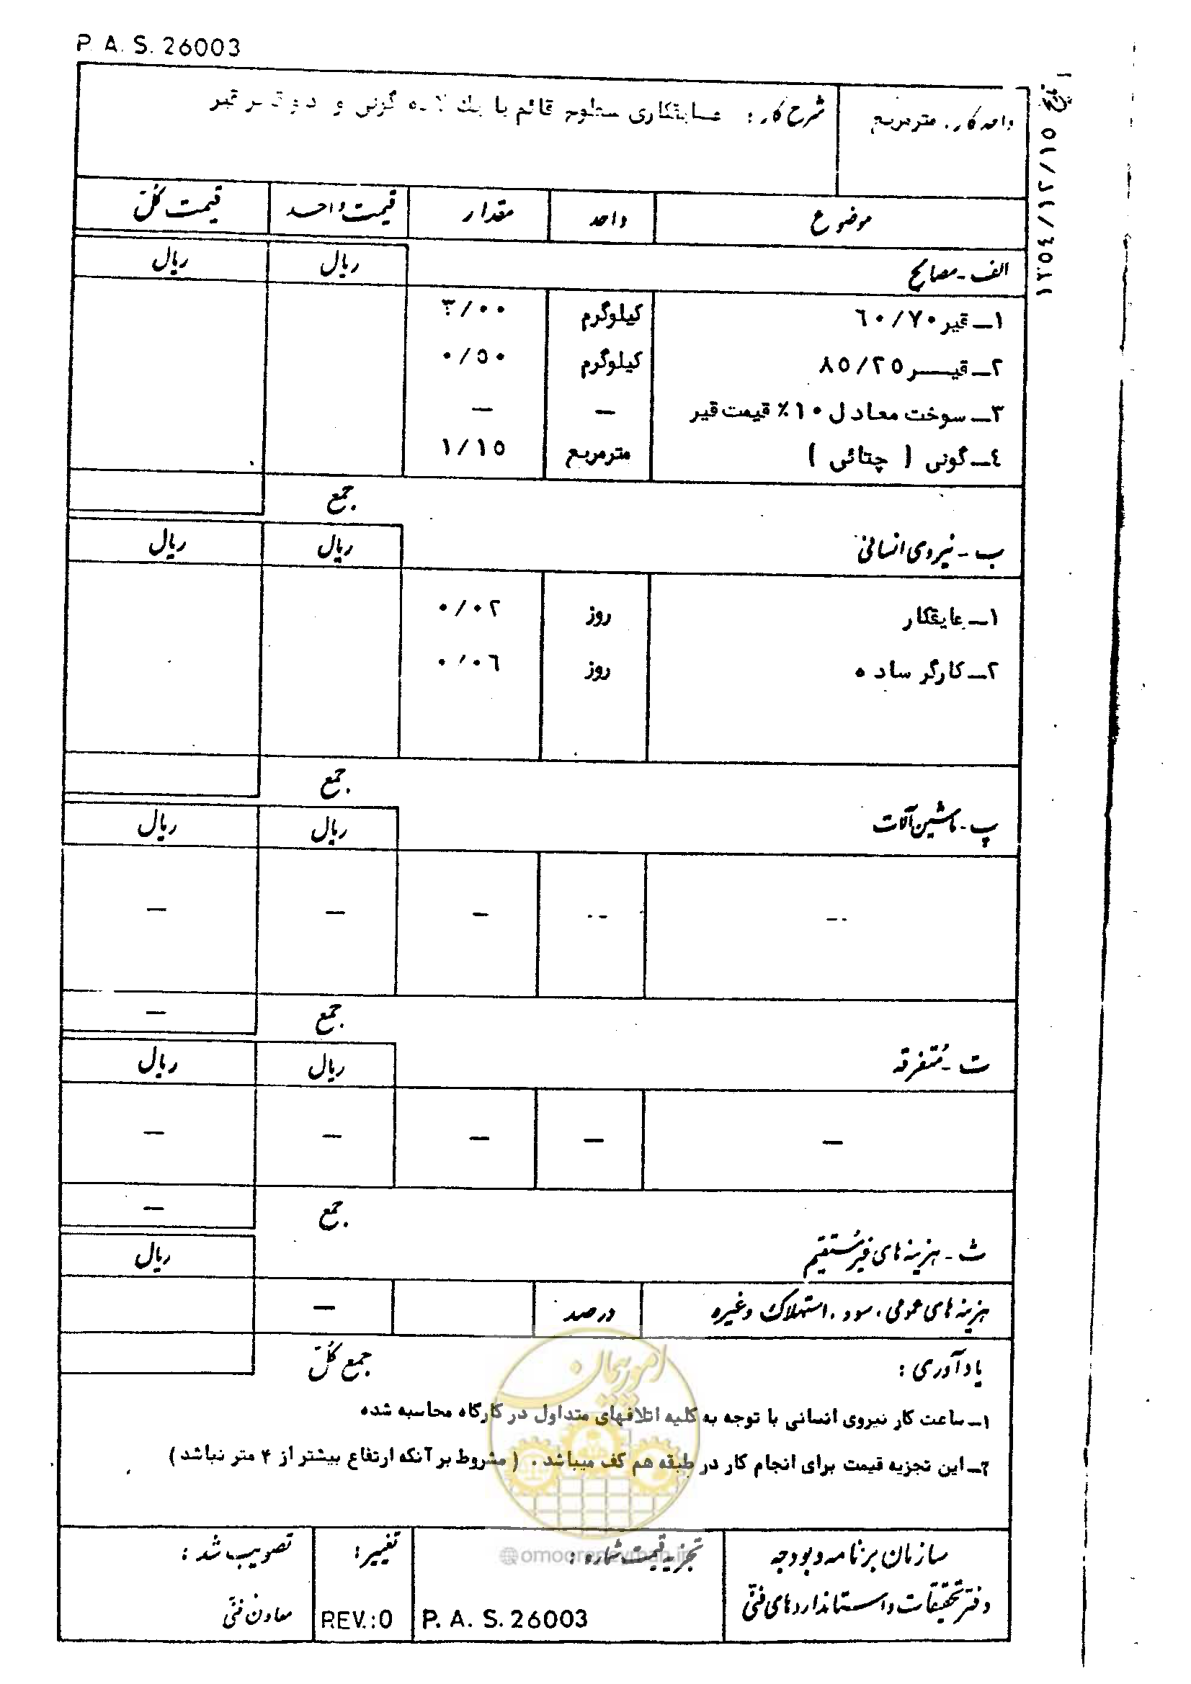 P. A. S. 26003
تاریخ ۱۳۵٤/۱۲/۱۵
واحد کار: مترمربع
شرح کار: عایقکاری سطوح قائم با یك لایه گونی و دو قشر قیر
موضوع واحد مقدار قیمت واحد قیمت کل
الف - مصالح ریال ریال
۱ـ قیر ٦۰/۷۰ کیلوگرم ۳/۰۰
۲ـ قیـــر ۸۵/۲۵ کیلوگرم ۰/۵۰
۳ـ سوخت معادل ۱۰٪ قیمت قیر — —
٤ـ گونی ( چتائی ) مترمربع ۱/۱۵
جمع
ب - نیروی انسانی ریال ریال
۱ـ عایقکار روز ۰/۰۲
۲ـ کارگر ساده روز ۰/۰٦
جمع
پ - ماشین آلات ریال ریال
— — — — —
جمع —
ت - متفرقه ریال ریال
— — — — —
جمع —
ث - هزینه های غیرمستقیم ریال
هزینه های عمومی، سود، استهلاک و غیره درصد —
جمع کل
یادآوری:
۱ـ ساعت کار نیروی انسانی با توجه به کلیه اتلافهای متداول در کارگاه محاسبه شده
۲ـ این تجزیه قیمت برای انجام کار در طبقه هم کف میباشد . ( مشروط بر آنکه ارتفاع بیشتر از ۴ متر نباشد )
امور پیمان
@omoorepeyman.ir
سازمان برنامه و بودجه
دفتر تحقیقات و استانداردهای فنی
تجزیه قیمت شماره:
P. A. S. 26003
تغییر:
REV.:0
تصویب شد:
معاون فنی